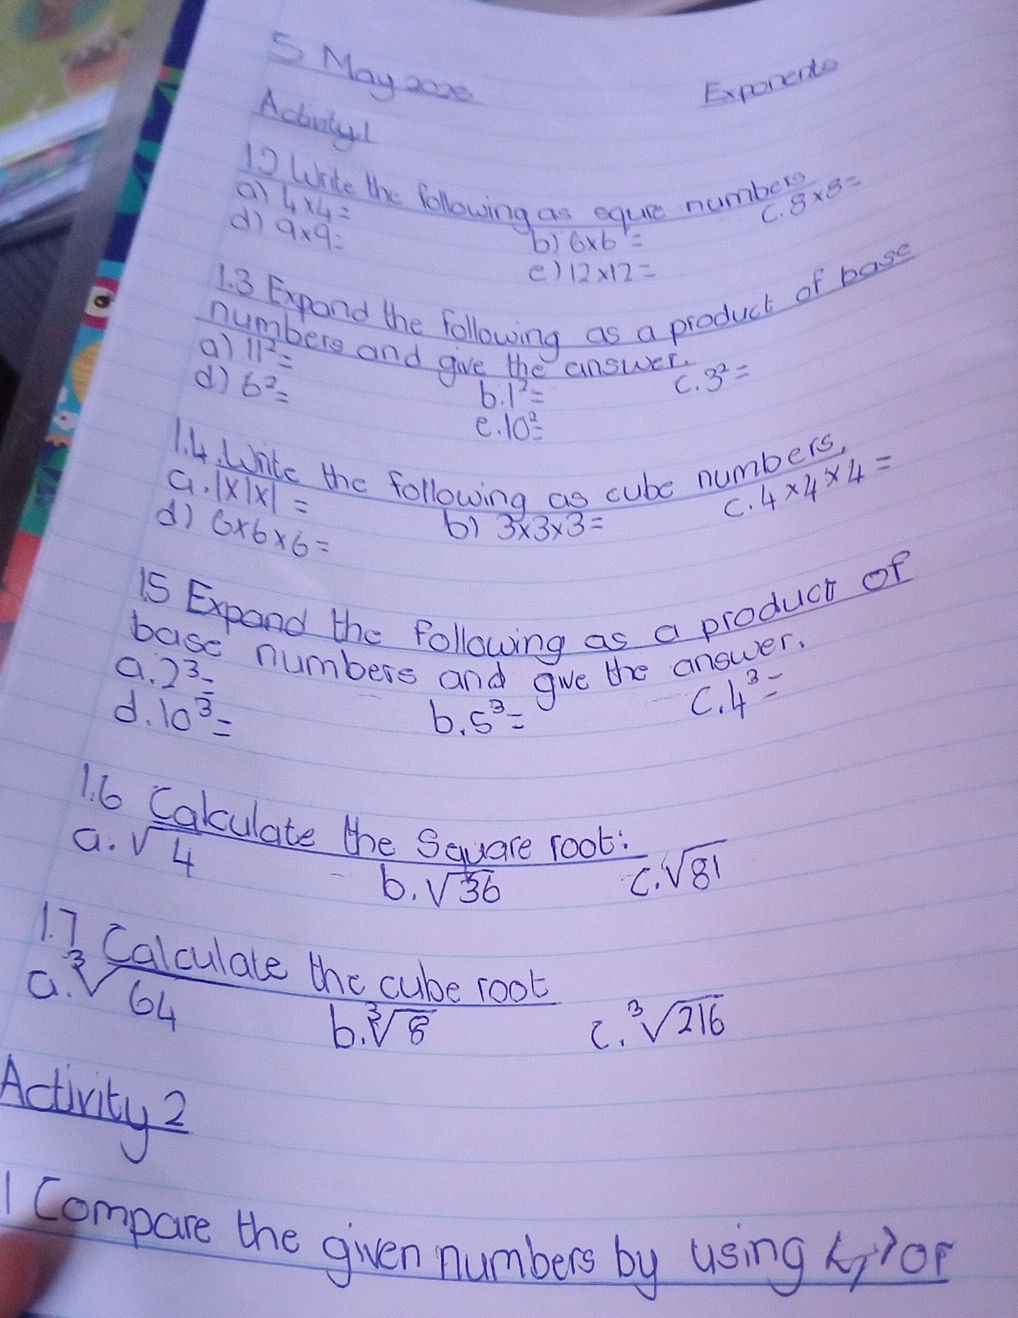 5 May 2026 Exponents
Activity 1
1.2 Write the following as equre numbers
a) 4x4= b) 6x6= c. 8x8=
d) 9x9= e) 12x12=
1.3 Expand the following as a product of base
numbers and give the answer.
a) 11²= b. 1²= c. 3²=
d) 6²= e. 10²=
1.4. Write the following as cube numbers.
a. 1x1x1= b) 3x3x3= c. 4x4x4=
d) 6x6x6=
1.5 Expand the following as a product of
base numbers and give the answer.
a. 2³= b. 5³= c. 4³=
d. 10³=
1.6 Calculate the Square root:
a. √4 b. √36 c. √81
1.7 Calculate the cube root
a. ³√64 b. ³√8 c. ³√216
Activity 2
1 Compare the given numbers by using <, > or